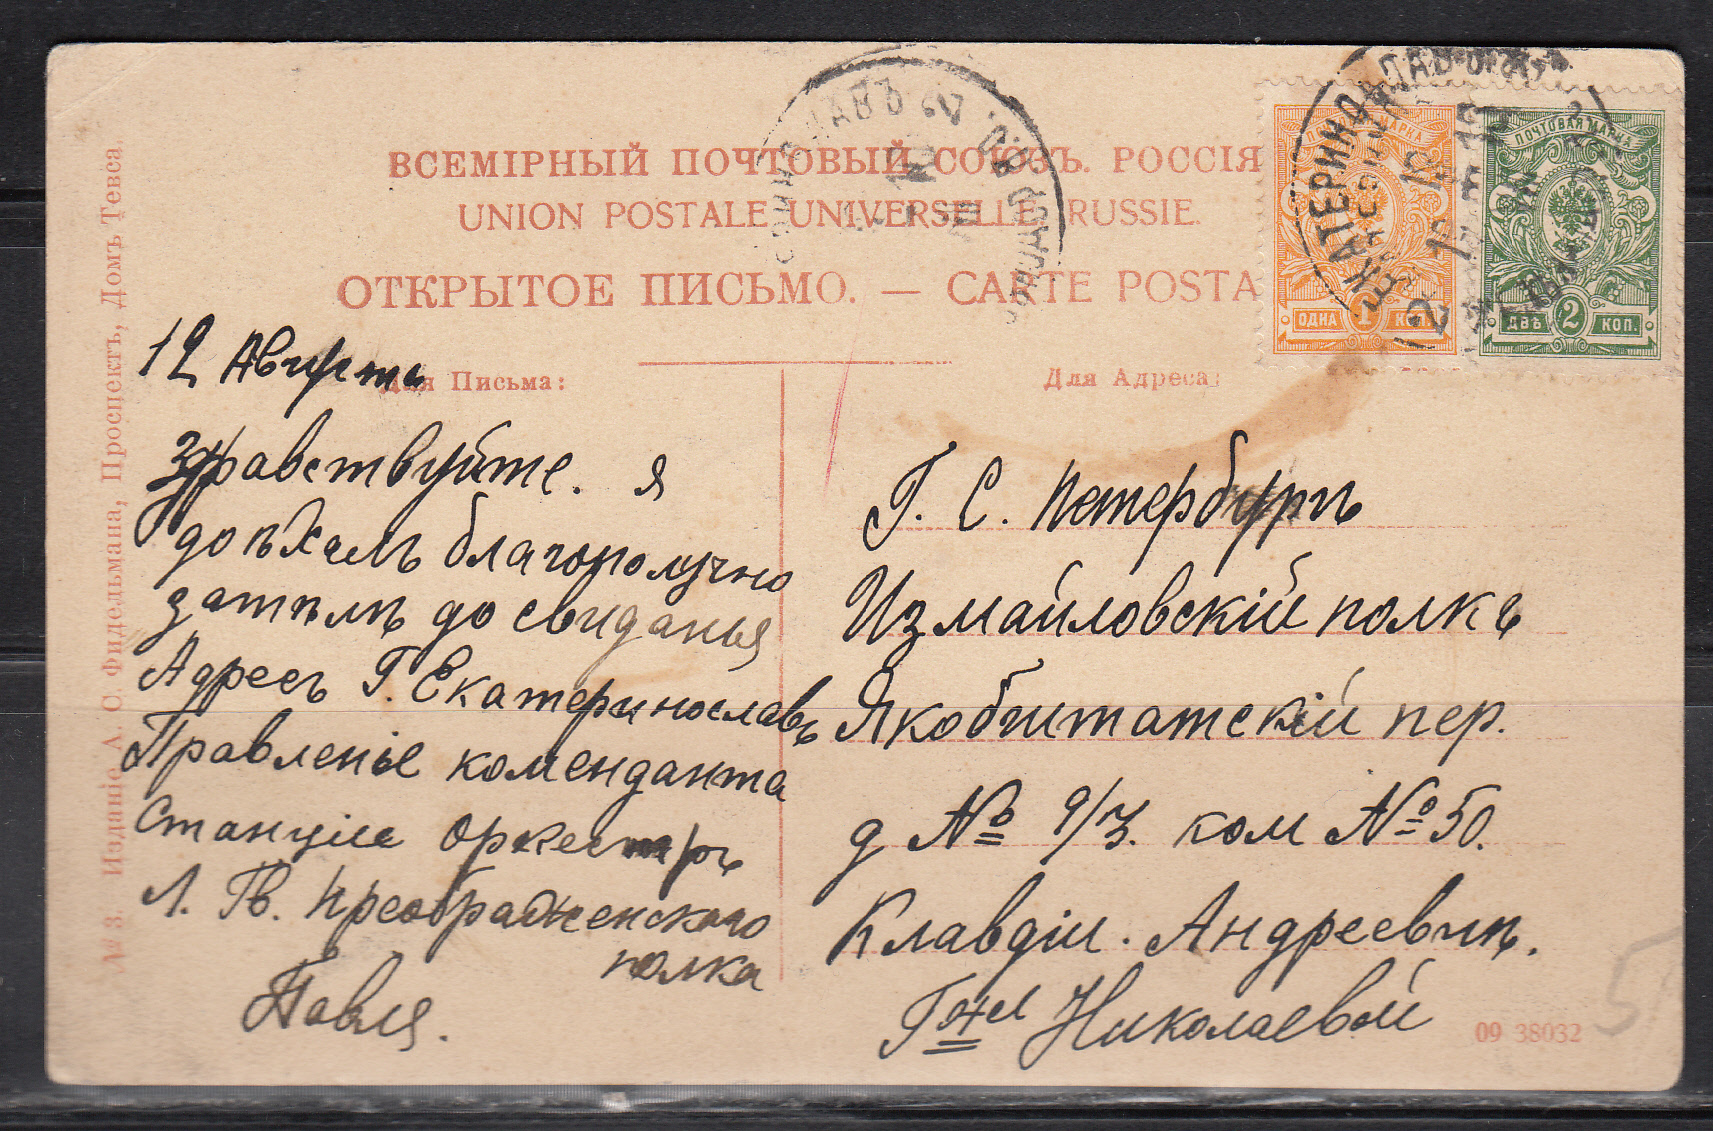 ВСЕМІРНЫЙ ПОЧТОВЫЙ СОЮЗЪ. РОССІЯ
UNION POSTALE UNIVERSELLE. RUSSIE.
ОТКРЫТОЕ ПИСЬМО. — CARTE POSTA
ПОЧТОВАЯ МАРКА
ОДНА 1 КОП
ПОЧТОВАЯ МАРКА
ДВѢ 2 КОП.
ЕКАТЕРИНОСЛАВЪ
12 Августа
Для Письма:
Здравствуйте. я
доѣхалъ благополучно
затѣмъ до свиданья
Адресъ Г. Екатеринославъ
Правленіе коменданта
Станціи оркестръ
Л. Гв. Преображенскаго
полка
Павля.
Для Адреса:
Г. С. Петербургъ
Измайловскій полкъ
Якобштатскій пер.
д № 9/3. ком № 50.
Клавдіи. Андреевнѣ.
Гжѣ Николаевой
09 38032
5
№ 3. Изданіе А. О. Фидельмана, Проспектъ, Домъ Тевса.